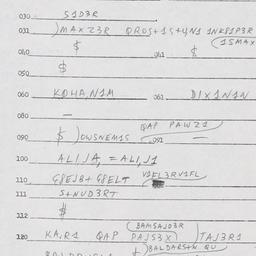 030. S1D3R
031 )MAXZ3R QROS+1S+4N1 1NK81P3R
(1SMAX
040 $ 041 $
050 $
060 KQHA,N1M 061 D1X1N1N
080 —
090 $ )OWSNEM1S QAP PAWZ1 091 —
100 AL1JA, = AL1,J1
110 G8EJB+ G8ELT V1FL3RV1FL
111 S+NUD3RT
112 $
120 KA,R1 QAP PAJS3X TAJ3R1
(BAMSAJD3R
)BALDARS+N QU